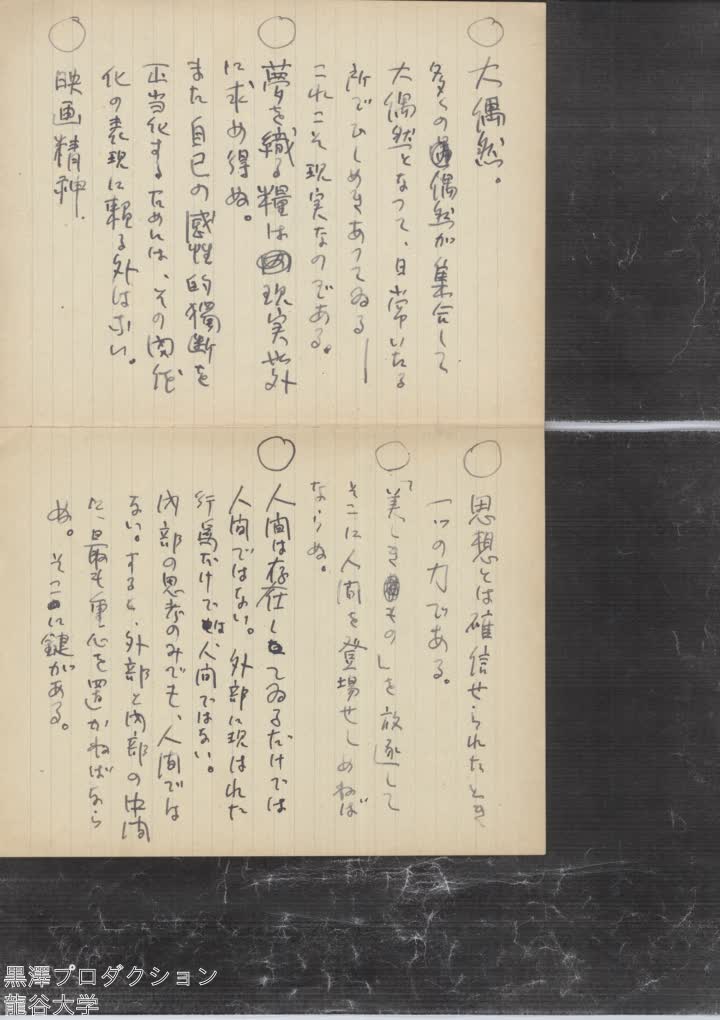 大偶然。
多くの偶然が集合して
大偶然となって、日常いたる
所でひしめきあってゐる―
これこそ現実なのである。
夢を織る糧は現実以外
に求め得ぬ。
また自己の感性的獨断を
正当化するためには、その
化の表現に頼る外はない。
映画精神.
思想とは確信せられたとき
一つの力である。
「美しきもの」を放逐して
そこに人間を登場せしめねば
ならぬ。
人間は存在してゐるだけでは
人間ではない。外部に現はれた
行為だけでは人間ではない。
内部の思考のみでも、人間では
ない。すると、外部と内部の中間
に最も重心を置かねばなら
ぬ。そこに鍵がある。
黒澤プロダクション
龍谷大学